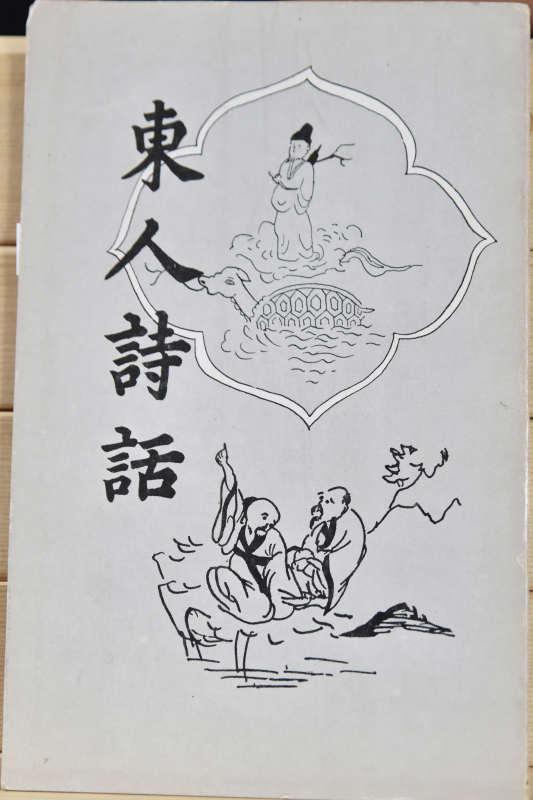 東人詩話